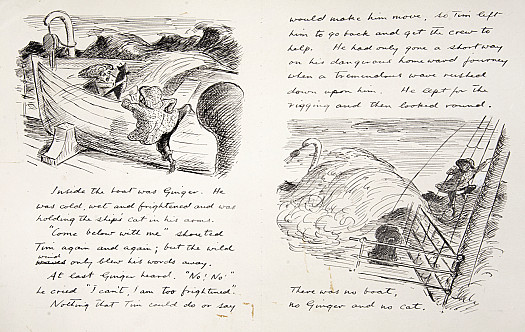 Inside the boat was Ginger. He
was cold, wet and frightened and was
holding the ship's cat in his arms.
"Come below with me" shouted
Tim again and again; but the wild
wind only blew his words away.
At last Ginger heard. "No! No!"
he cried "I can't, I am too frightened".
Nothing that Tim could do or say
would make him move, so Tim left
him to go back and get the crew to
help. He had only gone a short way
on his dangerous homeward journey
when a tremendous wave rushed
down upon him. He leapt for the
rigging and then looked round.
There was no boat,
no Ginger and no cat.